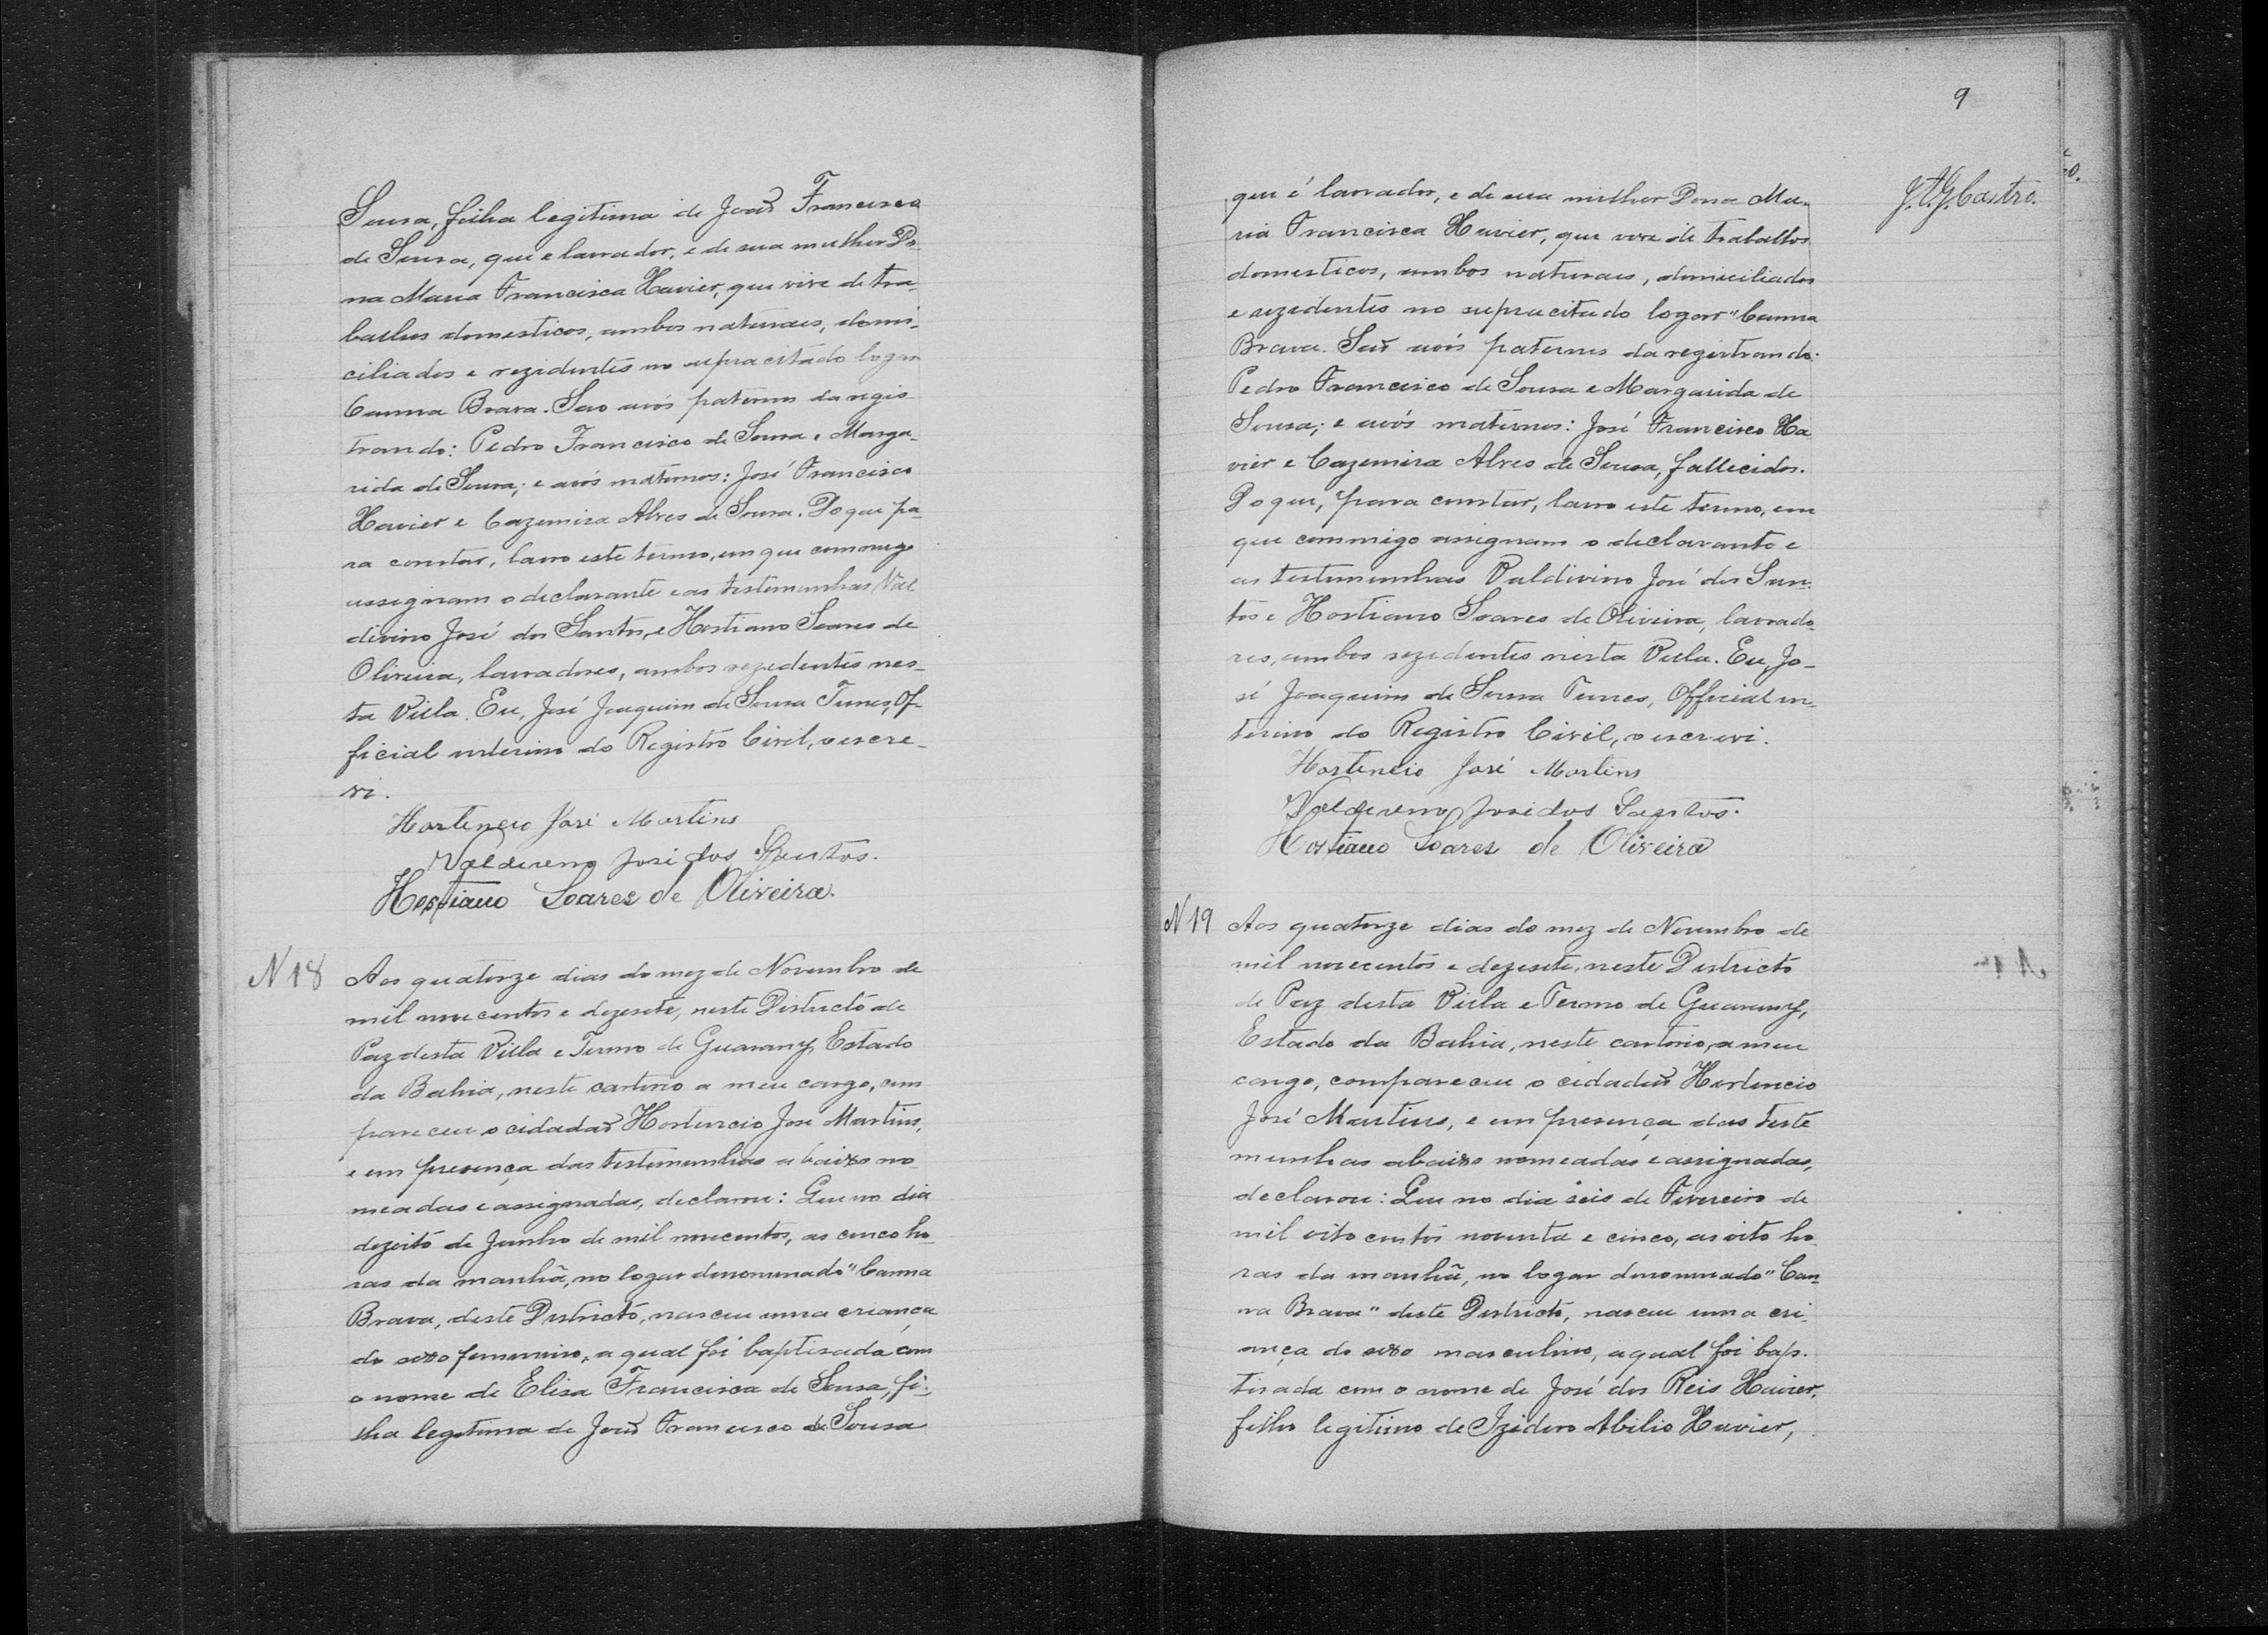 Sousa, filha legitima de João Francisco
de Sousa, que é lavrador, e de sua mulher Do-
na Maria Francisca Xavier, que vive de tra-
balhos domesticos, ambos naturaes, domi-
ciliados e rezidentes no supracitado logar
Canna Brava. São avós paternos da regis-
trando: Pedro Francisco de Sousa e Marga-
rida de Sousa; e avós maternos: José Francisco
Xavier e Cazemira Alves de Sousa. Do que pa-
ra constar, lavro este termo, em que commigo
assignam o declarante e as testemunhas Val
divino José dos Santos, e Hostiano Soares de
Oliveira, lavradores, ambos rezidentes nes-
ta Villa. Eu, José Joaquim de Sousa Tunes, Of-
ficial interino do Registro Civil, o escre-
vi.
Hortencio José Martins
Valdereno José dos Santos.
Hostiano Soares de Oliveira.
N 18 Aos quatorze dias do mez de Novembro de
mil novecentos e dezesete, neste Districto de
Paz desta Villa e Termo de Guarany, Estado
da Bahia, neste cartorio a meu cargo, com
pareceu o cidadão Hortencio José Martins,
e em presença das testemunhas abaixo no-
meadas e assignadas, declarou: Que no dia
dezoito de Junho de mil novecentos, as cinco ho-
ras da manhã, no logar denominado "Canna
Brava, deste Districto, nasceu uma criança
do sexo femenino, a qual foi baptisada com
o nome de Elisa Francisca de Sousa, fi-
lha legitima de João Francisco de Sousa
9
J. A. G. Castro.
que é lavrador, e de sua mulher Dona Ma-
ria Francisca Xavier, que vive de trabalhos
domesticos, ambos naturaes, domiciliados
e rezidentes no supracitado logar "Canna
Brava. São avós paternos da registrando:
Pedro Francisco de Sousa e Margarida de
Sousa; e avós maternos: José Francisco Xa
vier e Cazemira Alves de Sousa, fallecidos.
Do que, para constar, lavro este termo, em
que commigo assignam o declarante e
as testemunhas Valdivino José dos San-
tos e Hostiano Soares de Oliveira, lavrado-
res, ambos rezidentes nesta Villa. Eu, Jo-
sé Joaquim de Sousa Tunes, Official in-
terino do Registro Civil, o escrevi.
Hortencio José Martins
Valdereno José dos Santos.
Hostiano Soares de Oliveira
N 19 Aos quatorze dias do mez de Novembro de
mil novecentos e dezesete, neste Districto
de Paz desta Villa e Termo de Guarany,
Estado da Bahia, neste cartorio, a meu
cargo, compareceu o cidadão Hortencio
José Martins, e em presença das teste
munhas abaixo nomeadas e assignadas,
declarou: Que no dia seis de Fevereiro de
mil oito centos noventa e cinco, as oito ho-
ras da manhã, no logar denominado "Can-
na Brava" deste Districto, nasceu uma cri-
ança do sexo masculino, a qual foi bap-
tisada com o nome de José dos Reis Xavier,
filho legitimo de Izidoro Abilio Xavier,